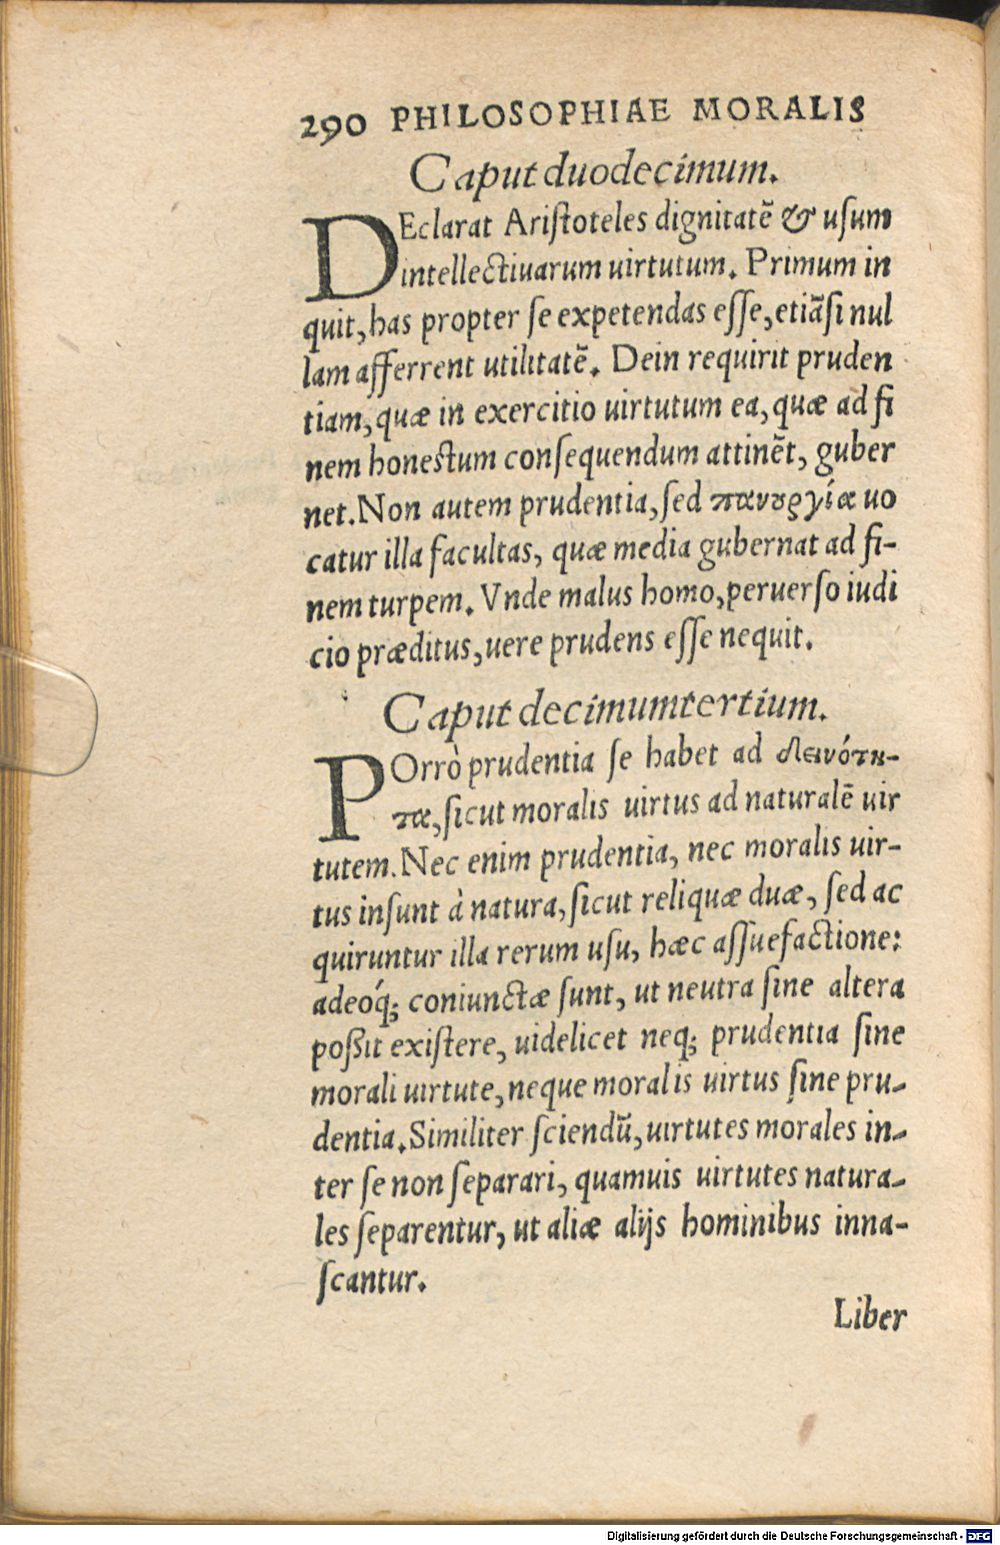 290 PHILOSOPHIAE MORALIS
Caput duodecimum.
DEclarat Ariſtoteles dignitatē & uſum
intellectiuarum uirtutum. Primum in
quit, has propter ſe expetendas eſſe, etiāſi nul
lam afferrent utilitatē. Dein requirit pruden
tiam, quæ in exercitio uirtutum ea, quæ ad fi
nem honestum conſequendum attinēt, guber
net. Non autem prudentia, ſed πανουργία uo
catur illa facultas, quæ media gubernat ad fi-
nem turpem. Vnde malus homo, peruerſo iudi
cio præditus, uere prudens eſſe nequit.
Caput decimumtertium.
POrrò prudentia ſe habet ad δεινότη-
τα, ſicut moralis uirtus ad naturalē uir
tutem. Nec enim prudentia, nec moralis uir-
tus inſunt à natura, ſicut reliquæ duæ, ſed ac
quiruntur illa rerum uſu, hæc aſſuefactione:
adeóq; coniunctæ ſunt, ut neutra ſine altera
poßit exiſtere, uidelicet neq; prudentia ſine
morali uirtute, neque moralis uirtus ſine pru-
dentia. Similiter ſciendū, uirtutes morales in-
ter ſe non ſeparari, quamuis uirtutes natura-
les ſeparentur, ut aliæ alijs hominibus inna-
ſcantur.
Liber
Digitalisierung gefördert durch die Deutsche Forschungsgemeinschaft - DFG